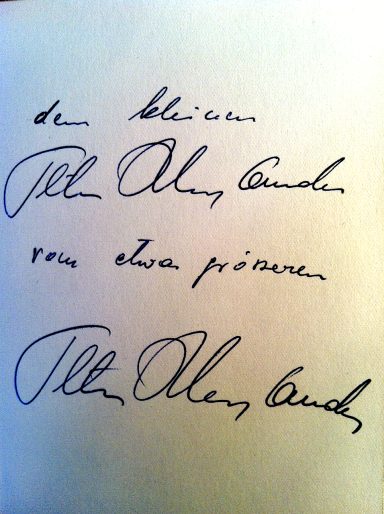 dem kleinen
Peter Alexander
vom etwas größeren
Peter Alexander